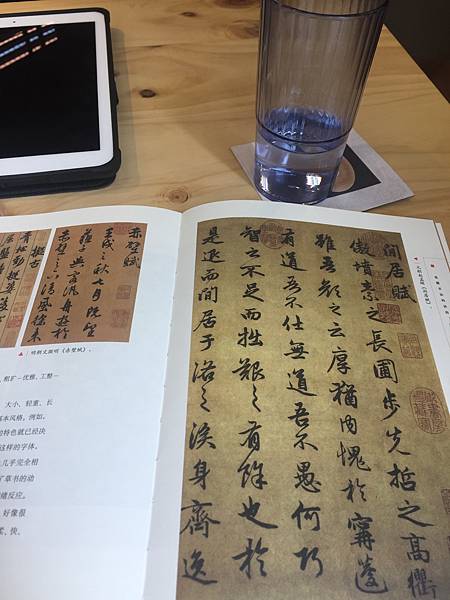 赤壁賦
壬戌之秋七月既望
蘇子與客汎舟遊於
赤壁之下清風徐來
、粗犷－优雅、工整－
、大小、轻重、长
基本风格。例如，
的特色就已经决
这样的字体。
几乎完全相
了草书的动
绪反应。
好像很
柔、快、
閒居賦
傲墳素之長圃步先哲之高衢
雖吾顏之云厚猶內愧於甯蘧
有道吾不仕無道吾不愚何巧
智之不足而拙艱之有餘也於
是退而閒居于洛之涘身齊逸